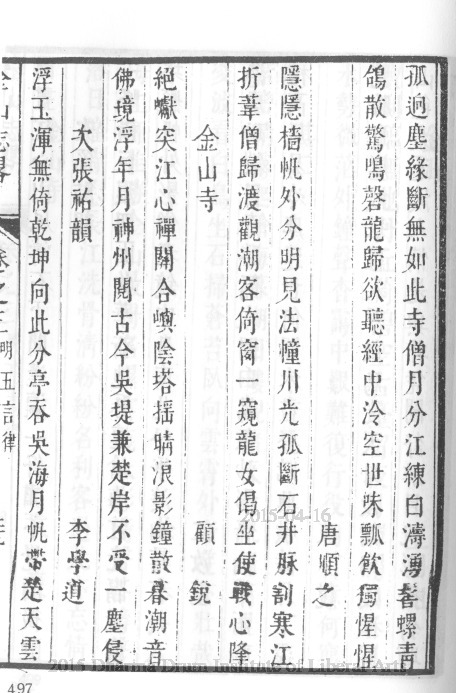 孤迥塵緣斷無如此寺僧月分江練白濤湧髻螺青
鴿散驚鳴磬龍歸欲聽經中泠空世味瓢飲獨惺惺
唐順之
隱隱檣帆外分明見法幢川光孤斷石井脉割寒江
折葦僧歸渡觀潮客倚窗一窺龍女偈坐使戰心降
金山寺 顧 鏡
絕巘突江心禪關合嶼陰塔搖晴浪影鐘散暮潮音
佛境浮年月神州閱古今吳堤兼楚岸不受一塵侵
次張祐韻 李學道
浮玉渾無倚乾坤向此分亭吞吳海月帆帶楚天雲
金山志畧 卷之三 明五言律
497
2015-04-16
2015 Dharma Drum Institute of Liberal Arts